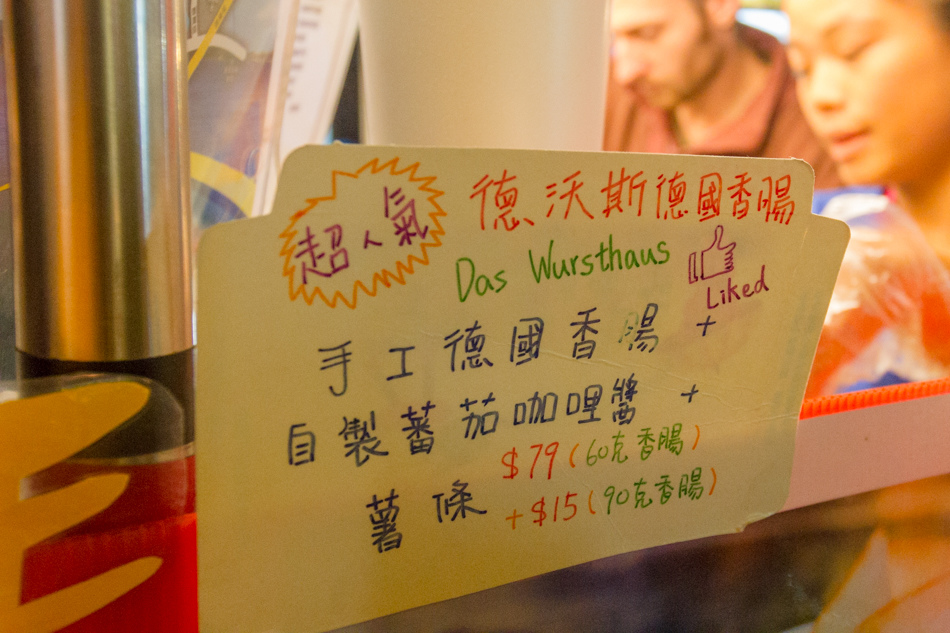 超人氣
德沃斯德國香腸
Das Wursthaus
Liked
手工德國香腸 +
自製蕃茄咖哩醬 +
$79 (60克香腸)
薯條 +$15 (90克香腸)